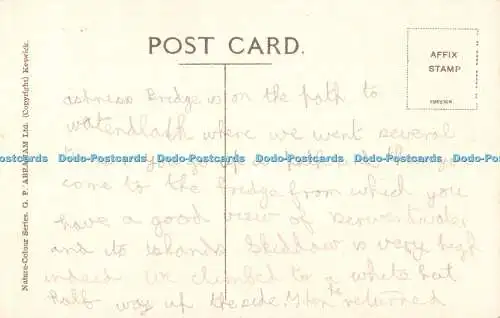 POST CARD.
AFFIX
STAMP
FOREIGN
Nature-Colour Series. G. P. ABRAHAM Ltd. (Copyright) Keswick.
ashness Bridge is on the path to
watendlath where we went several
Dodo-Postcards Dodo-Postcards Dodo-Postcards Dodo-Postcards Dodo-Postcards Dodo-Postcards
come to the Bridge from which you
have a good view of Derwentwater
and its islands Skiddaw is very high
indeed we climbed to a white hut
half way up the side. & then returned